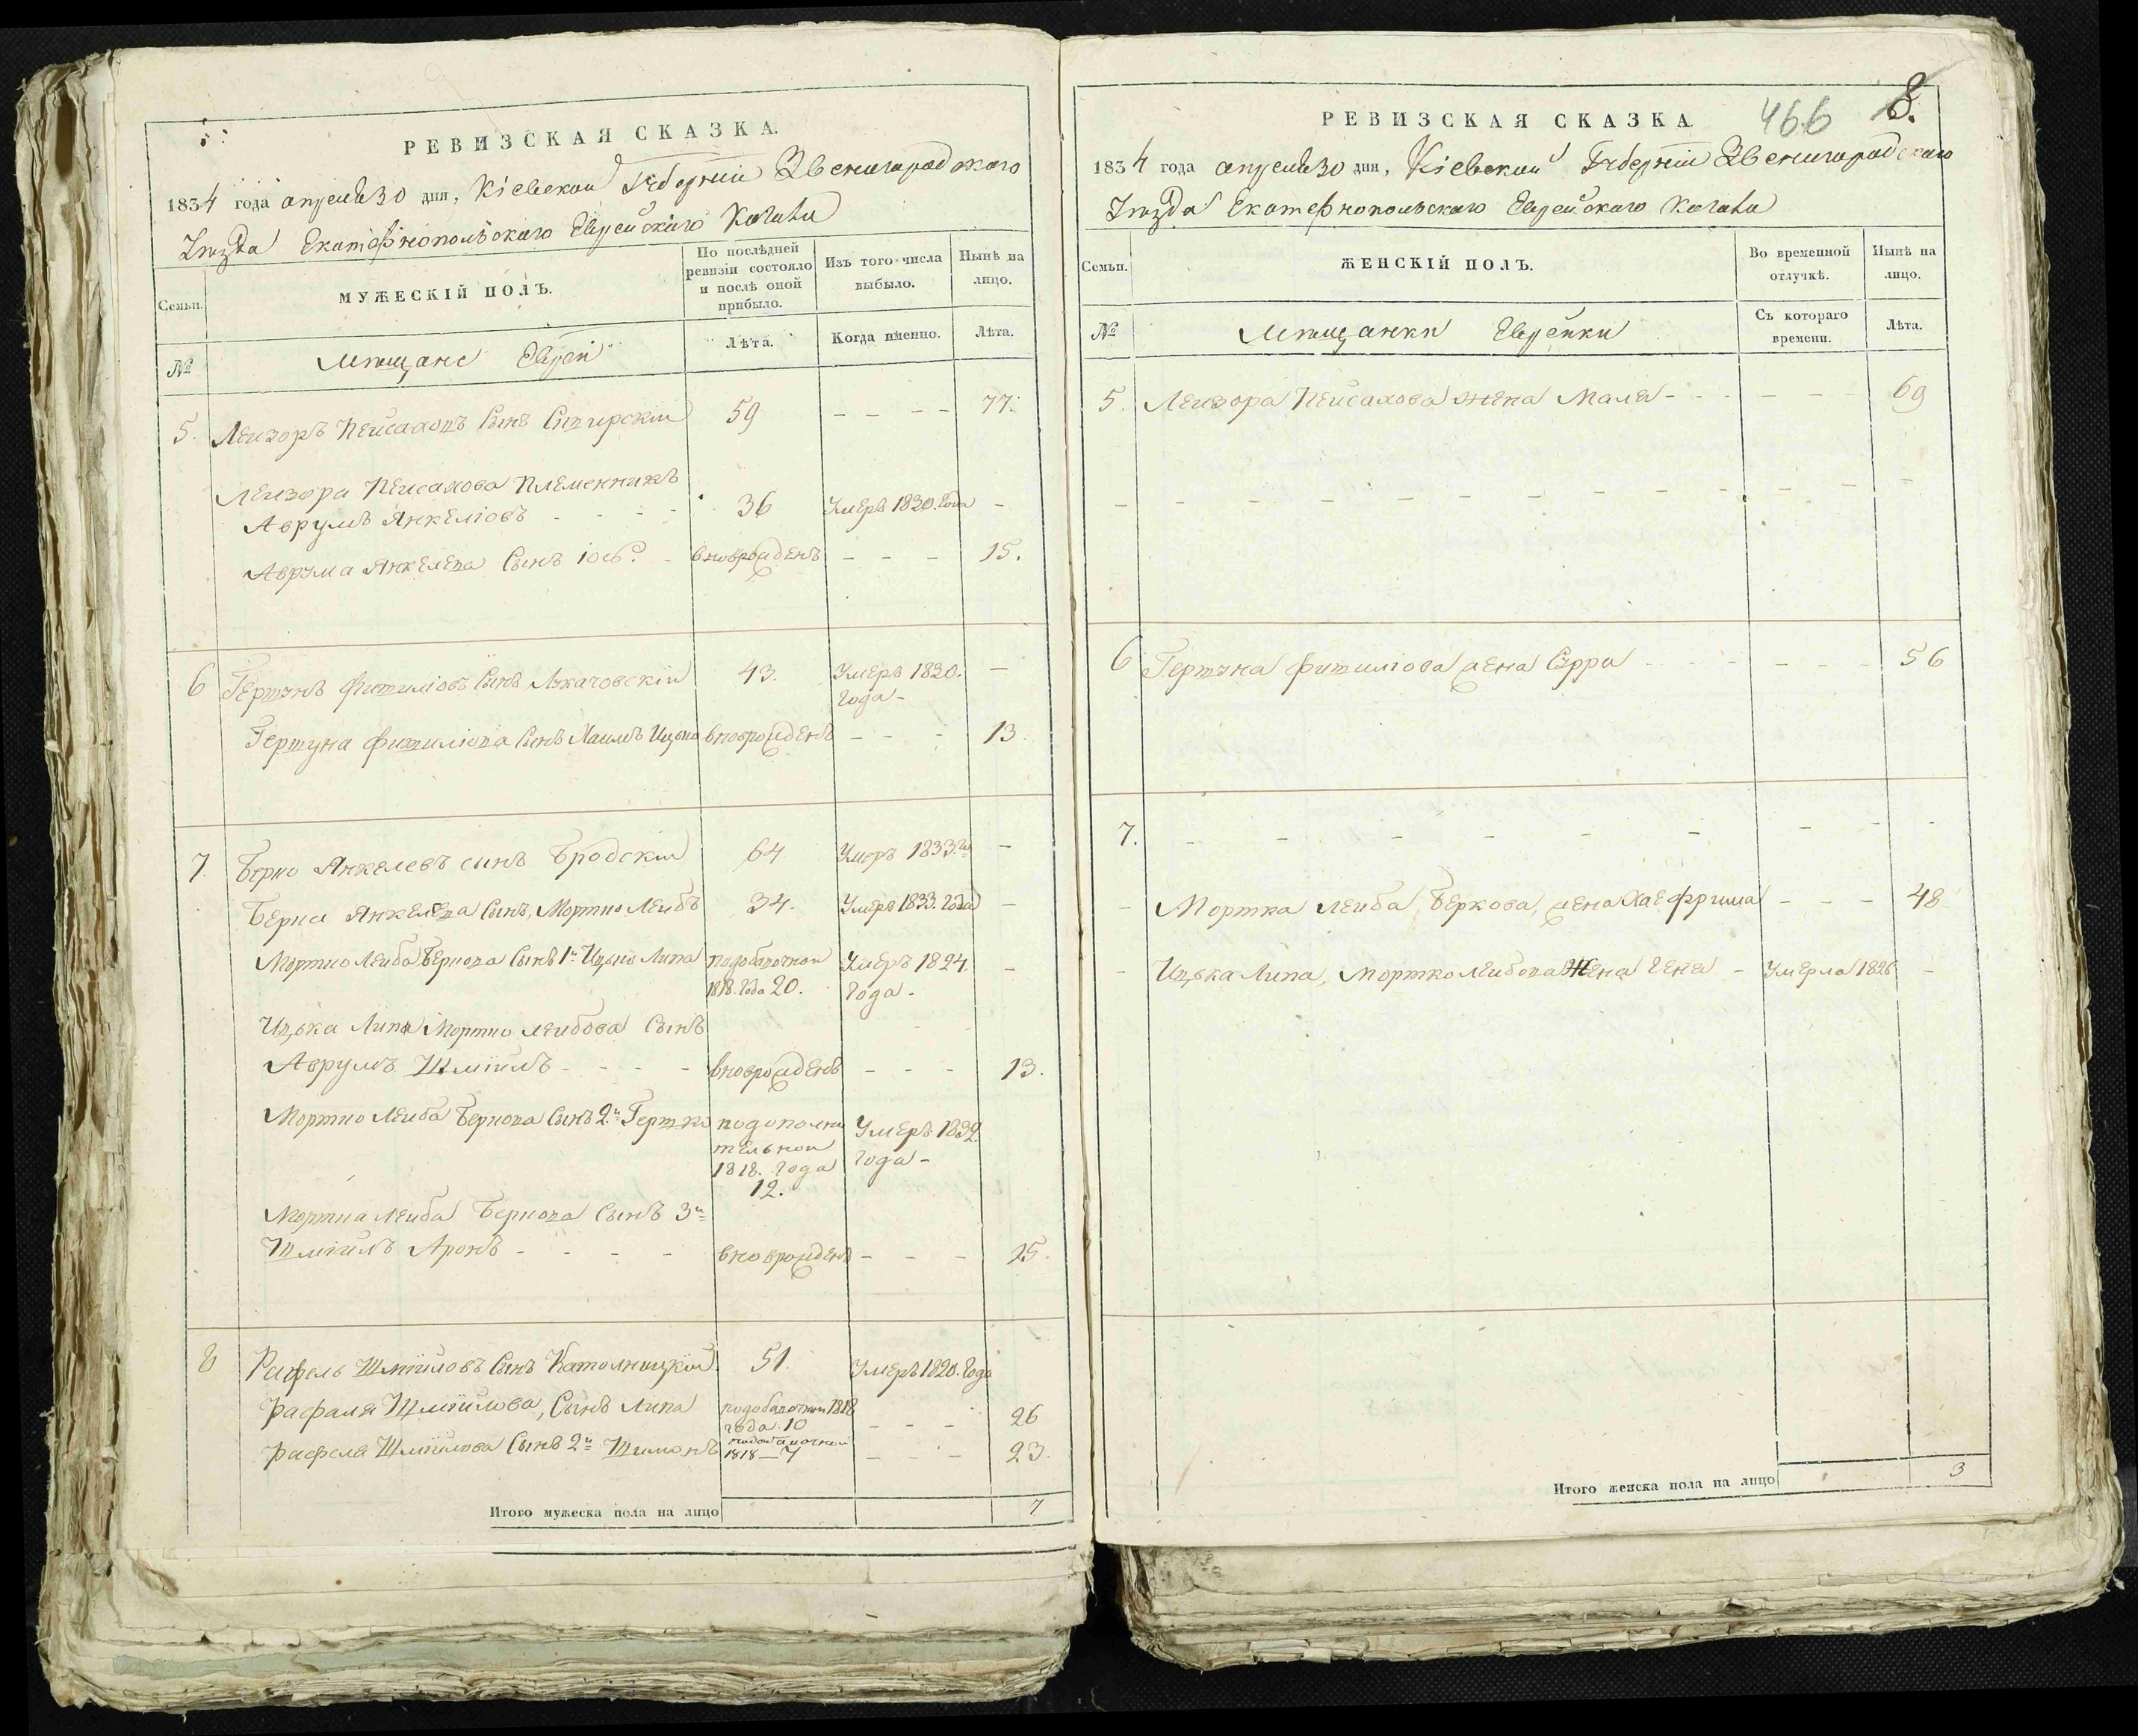 РЕВИЗСКАЯ СКАЗКА.
1834 года апреля 30 дня, Кіевской Губерніи Звенигородскаго
Уѣзда Екатеринопольскаго Еврейскаго Кагала
Семьи.
МУЖЕСКІЙ ПОЛЪ.
По послѣдней ревизіи состояло и послѣ оной прибыло.
Изъ того числа выбыло.
Нынѣ на лицо.
№
Мѣщане Евреи
Лѣта.
Когда именно.
Лѣта.
5. Лейзоръ Пейсаховъ Сынъ 59 - - - - 77.
Лейзора Пейсахова Племенникъ
Аврумъ Янкеліовъ - - - - 36 Умеръ 1830. Года -
Аврума Янкелева Сынъ Іос. - вноврожденъ - - - 15.
6 Гершунъ Фишиліовъ Сынъ 43. Умеръ 1830. -
Года -
Гершуна Фишиліова Сынъ Хаимъ Ицько вноврожденъ - - - 13.
7. Берко Янкелевъ сынъ Бродскій 64 Умеръ 1833. го -
Берка Янкелева Сынъ, Мортко Лейбъ 34. Умеръ 1833. года -
Мортко Лейба Беркова Сынъ 1й Ицько Липа подобавочной Умеръ 1824. -
1818. Года 20. Года -
Ицька Липа Мортко Лейбова Сынъ
Аврумъ Шміилъ - - - - вноврожденъ - - - 13.
Мортко Лейба Беркова Сынъ 2й Гершко подополни Умеръ 1832.
тельной Года -
1818. Года
12.
Мортка Лейба Беркова Сынъ 3й
Шміилъ Аронъ - - - - вноврожденъ - - - 25.
8 Рафель Шміиловъ Сынъ 51. Умеръ 1820. Года
Рафаля Шміилова, Сынъ Липа подобавочной 1818 года 10 - - - 26
Рафеля Шміилова Сынъ 2й Шимонъ подобавочной 1818 - 7 - - - 23.
Итого мужеска пола на лицо 7
РЕВИЗСКАЯ СКАЗКА.
466 8.
1834 года апреля 30 дня, Кіевской Губерніи Звенигородскаго
Уѣзда Екатеринопольскаго Еврейскаго Кагала
Семьи.
ЖЕНСКІЙ ПОЛЪ.
Во временной отлучкѣ.
Нынѣ на лицо.
№
Мѣщанки Еврейки
Съ котораго времени.
Лѣта.
5. Лейзора Пейсахова жена Маля - - - - - - 69
6 Гершуна Фишиліова жена Сурра - - - - - - 56
7. - - - - - - - - -
- Мортка Лейба Беркова, жена - - - 48
- Ицька Липа, Мортко Лейбова Жена Геня - Умерла 1826 -
Итого женска пола на лицо 3